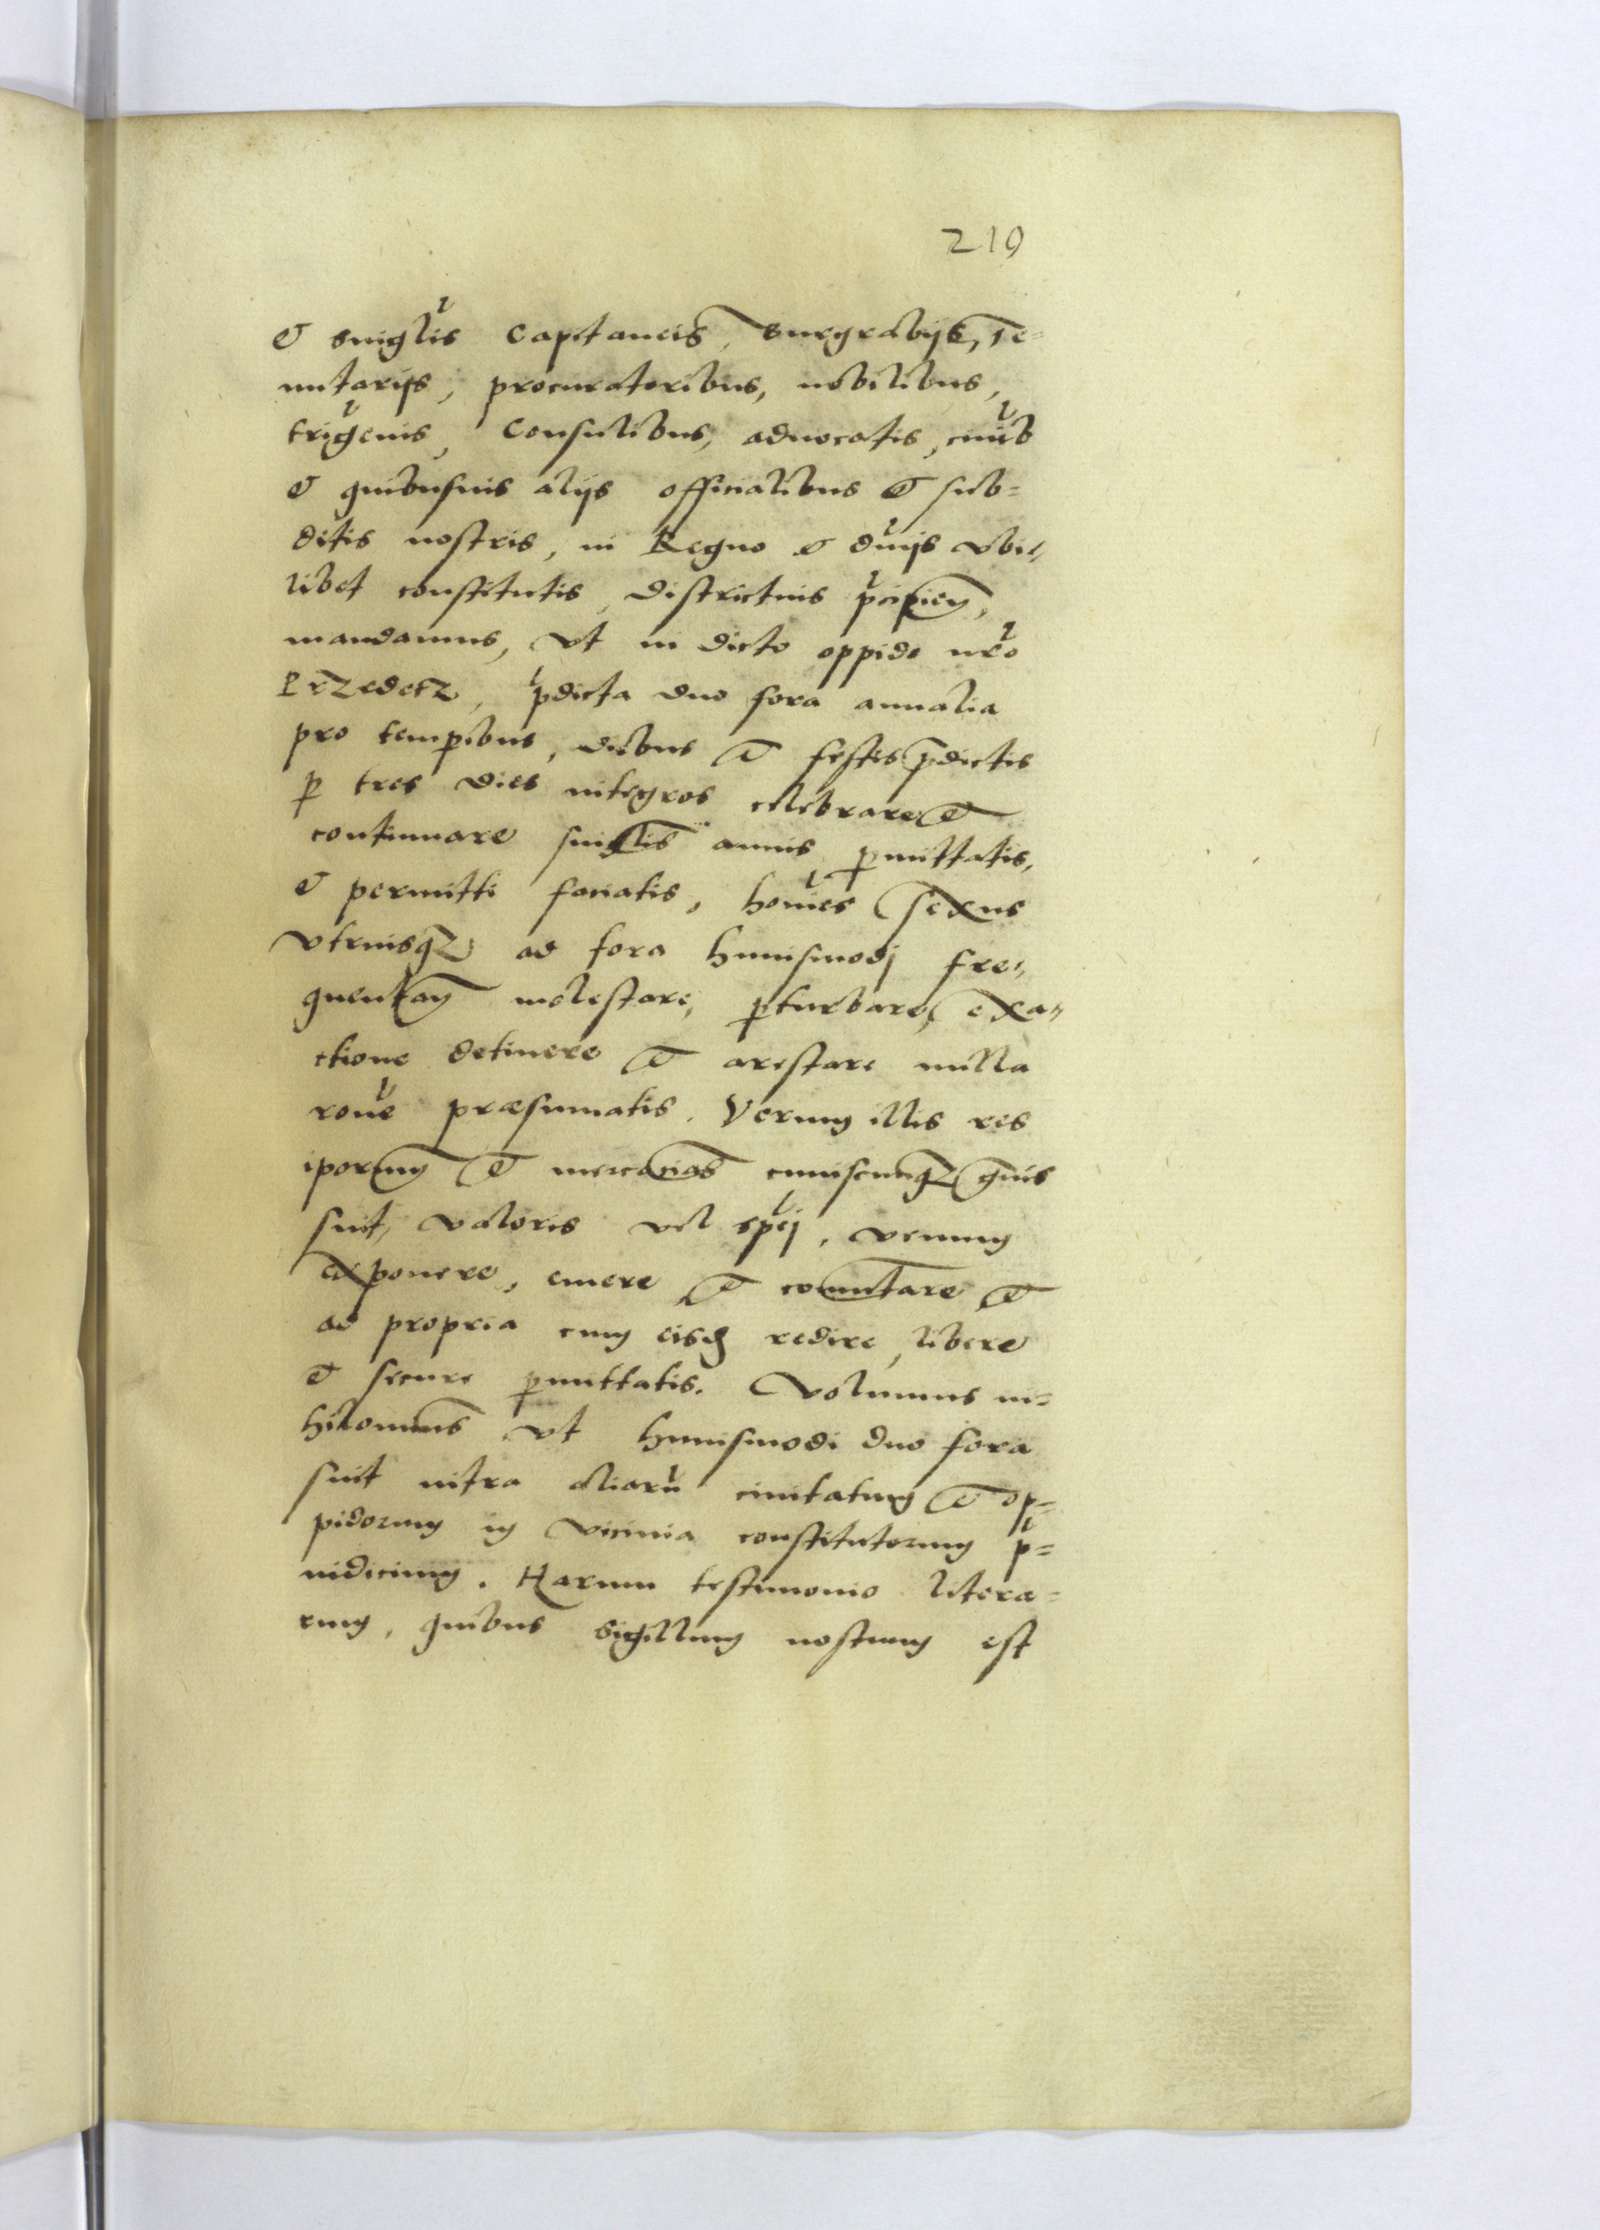 219
& singłis Capitaneis, Burgrabijs, Te=
nutarijs, procuratoribus, nobilibus,
trigenis, Consulibus, aduocatis, ciuib
& quibusuis alijs officialibus & sub=
ditis nostris, in Regno & dnijs vbi-
libet constitutis, districtius pcipien,
mandamus, vt in dicto oppido nro
Przedecz, pdicta duo fora annalia
pro tempibus, diebus & festis pdictis
p tres dies integros celebrare &
continuare singlis annis pmittatis,
& permitti faciatis, homies sexus
vtriusqz ad fora huiusmodj fre-
quentan molestare, pturbare, exa-
ctione detinere & arestare nulla
rone præsumatis. Verum illis res
iporum & mercancias cuiuscunqz gnis
sint, valoris vel spej, venum
exponere, emere & comutare &
ad propria cum eisd redire, libere
& secure pmittatis. Volumus ni=
hilominus vt huiusmodi duo fora
sint citra aliaru ciuitatum & op=
pidorum in vicinia constitutorum p=
iudicium. Harum testimonio litera=
rum, quibus Sigillum nostrum est